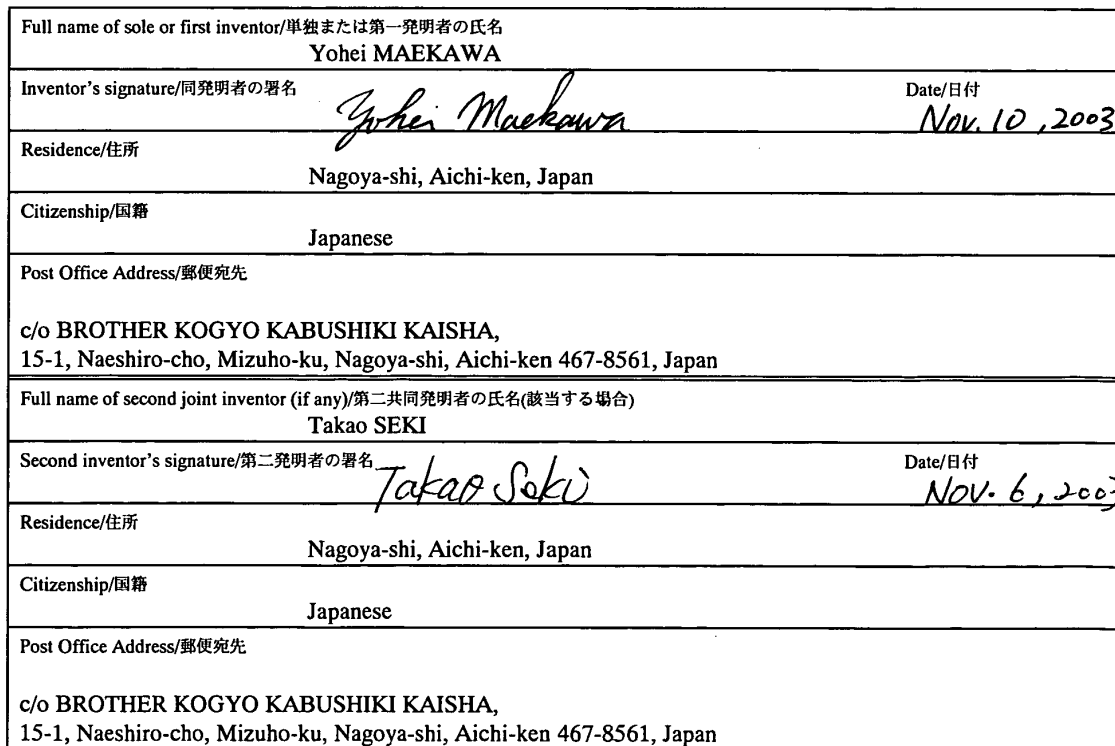 Full name of sole or first inventor/単独または第一発明者の氏名
Yohei MAEKAWA
Inventor's signature/同発明者の署名
Yohei Maekawa
Date/日付
Nov. 10, 2003
Residence/住所
Nagoya-shi, Aichi-ken, Japan
Citizenship/国籍
Japanese
Post Office Address/郵便宛先
c/o BROTHER KOGYO KABUSHIKI KAISHA,
15-1, Naeshiro-cho, Mizuho-ku, Nagoya-shi, Aichi-ken 467-8561, Japan
Full name of second joint inventor (if any)/第二共同発明者の氏名(該当する場合)
Takao SEKI
Second inventor's signature/第二発明者の署名
Takao Seki
Date/日付
Nov. 6, 2003
Residence/住所
Nagoya-shi, Aichi-ken, Japan
Citizenship/国籍
Japanese
Post Office Address/郵便宛先
c/o BROTHER KOGYO KABUSHIKI KAISHA,
15-1, Naeshiro-cho, Mizuho-ku, Nagoya-shi, Aichi-ken 467-8561, Japan